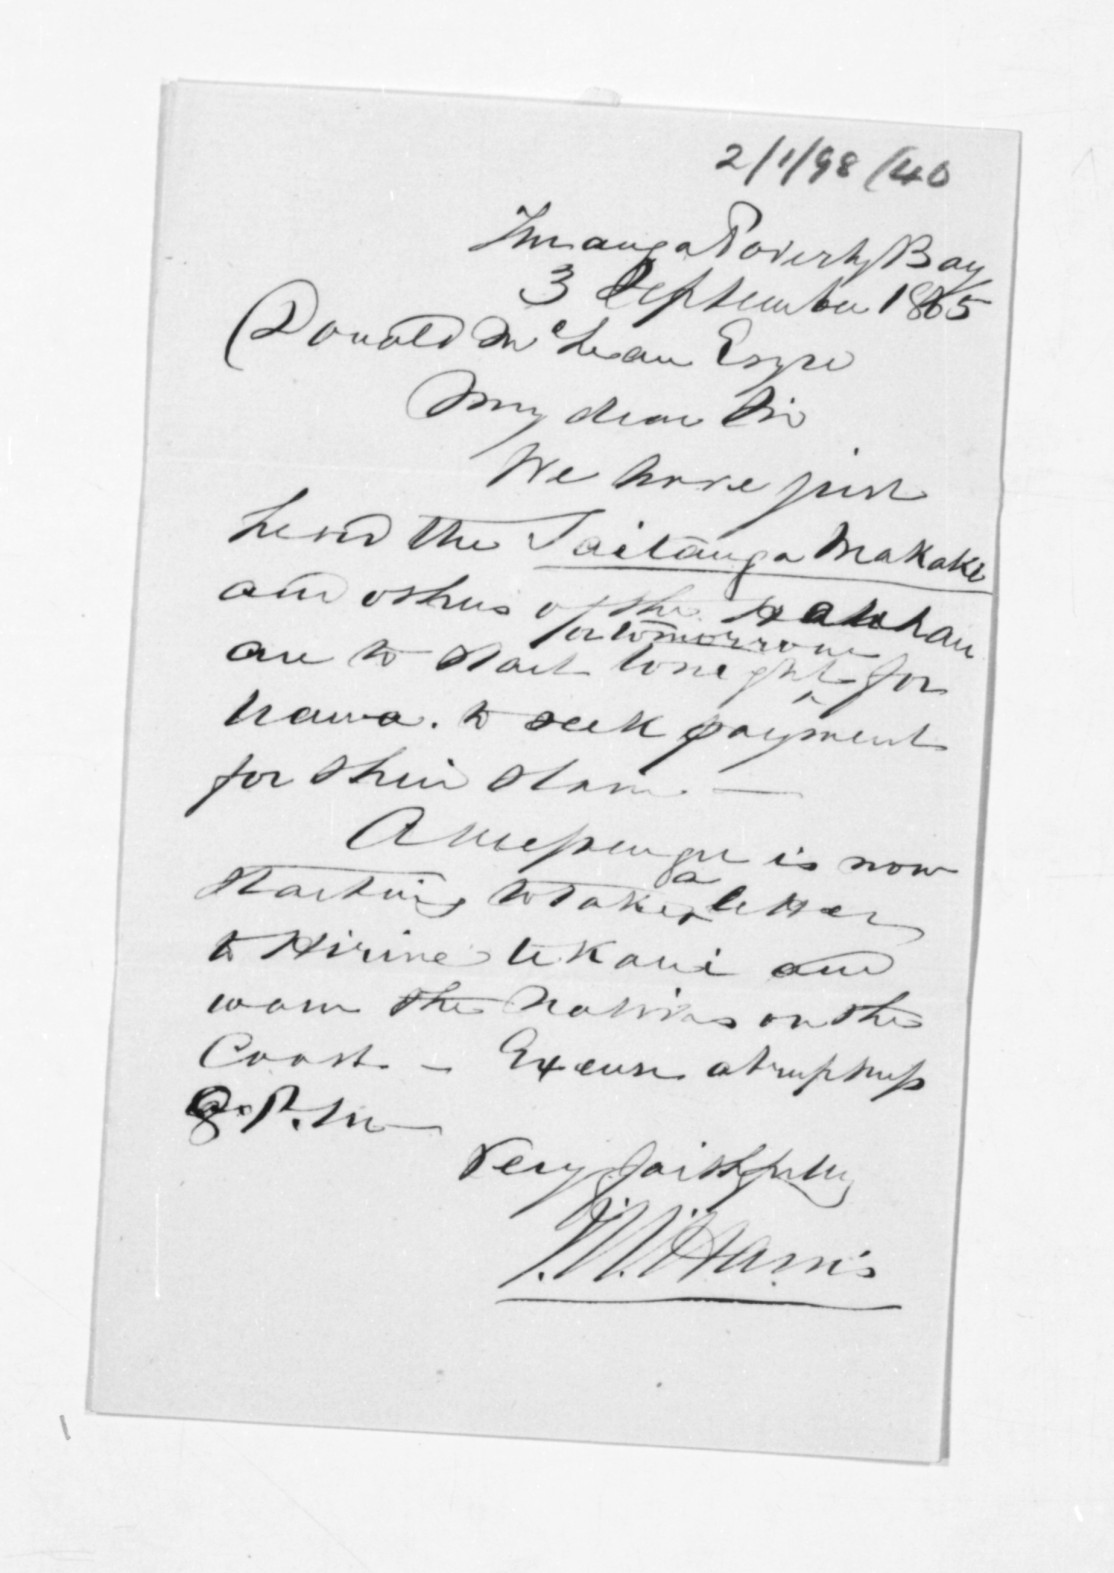 2/1/98/40
Turanga Poverty Bay
3 September 1865
Donald McLean Esqre
My dear Sir
We have just
heard the Taitanga Makake
and others of the Hauhau
or tomorrow
are to start tonight for
to seek payment
for their
A messenger is now
starting to take a letter
to Hirine te Kani and
warn the Natives on the
Coast - Excuse abruptness
8. P.M
Very faithfully
J.W. Harris